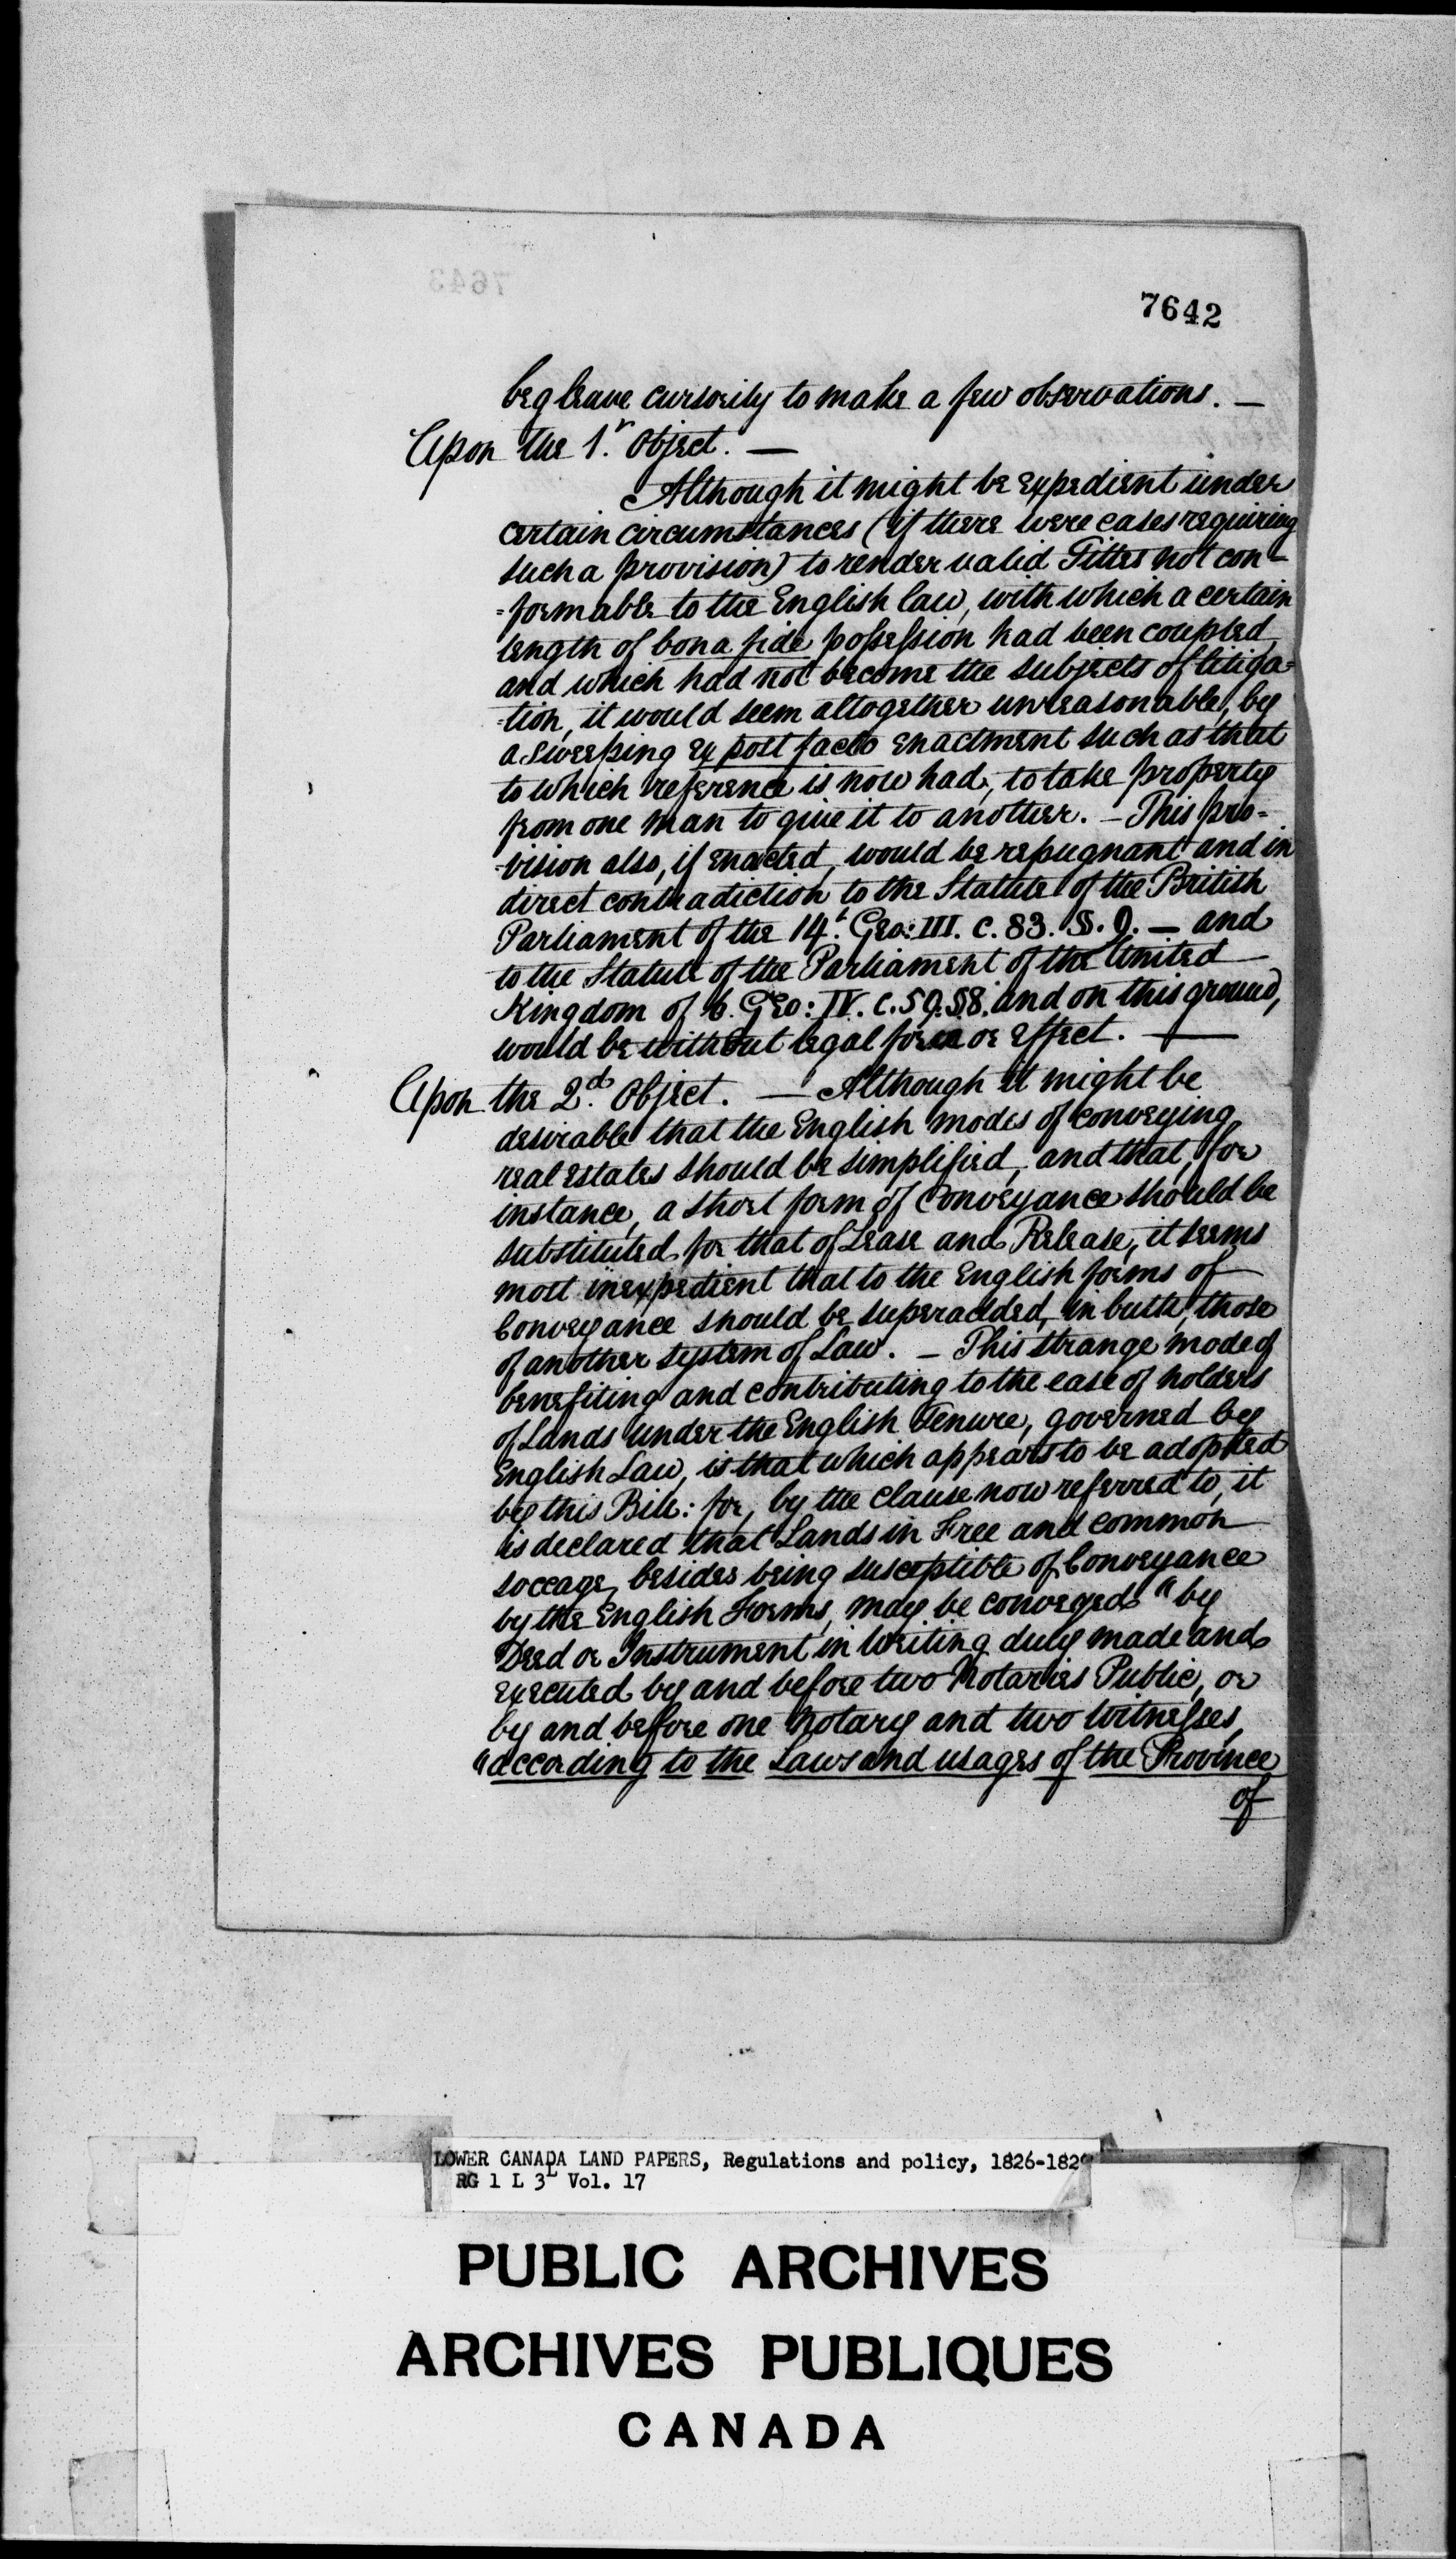 7643
7642
beg leave cursorily to make a few observations. —
Upon the 1.r Object. —
Although it might be expedient under
certain circumstances (if there were cases requiring
such a provision) to render valid Titles not con-
=formable to the English law, with which a certain
length of bona fide possession had been coupled,
and which had not become the subjects of litiga=
=tion, it would seem altogether unreasonable, by
a sweeping ex post facto enactment such as that
to which reference is now had, to take property
from one man to give it to another. — This pro-
-vision also, if enacted, would be repugnant and in
direct contradiction to the Statute of the British
Parliament of the 14.t Geo: III. c. 83. S. 9. — and
to the Statute of the Parliament of the United
Kingdom of 6. Geo: IV. c. 59. S8. and on this ground,
would be without legal force or effect. —
Upon the 2.d Object. — Although it might be
desirable that the English modes of conveying
real estates should be simplified, and that, for
instance, a short form of Conveyance should be
substituted for that of Lease and Release, it seems
most inexpedient that to the English forms of
Conveyance should be superadded, in bulk, those
of another system of Law. — This strange mode of
benefiting and contributing to the ease of holders
of Lands under the English Tenure, governed by
English Law, is that which appears to be adopted
by this Bill: for, by the clause now referred to, it
is declared that Lands in Free and common
soccage, besides being susceptible of Conveyance
by the English Forms, may be conveyed "by
Deed or Instrument in writing duly made and
executed by and before two Notaries Public, or
by and before one Notary and two Witnesses,
"according to the Laws and usages of the Province
of
LOWER CANADA LAND PAPERS, Regulations and policy, 1826-1829
RG 1 L 3L Vol. 17
PUBLIC ARCHIVES
ARCHIVES PUBLIQUES
CANADA